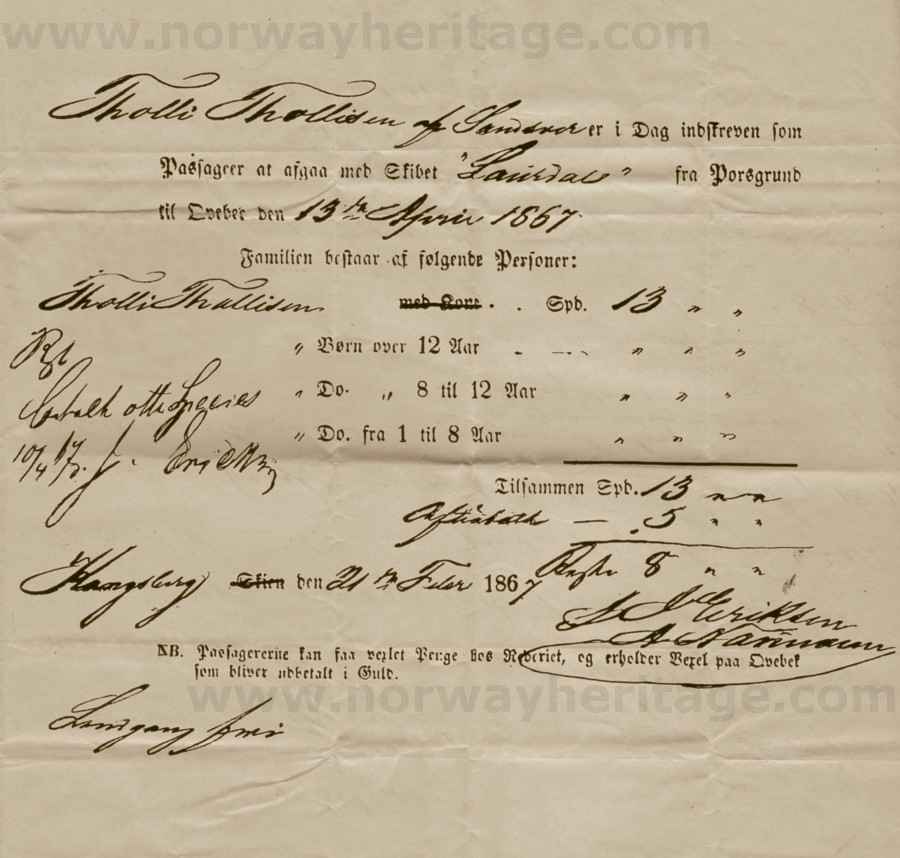 www.norwayheritage.com
Tholli Thollisen af Sandsver er i Dag indskreven som
Passageer at afgaa med Skibet "Laurdal" fra Porsgrund
til Qvebec den 13de April 1867
Familien bestaar af følgende Personer:
Tholli Thollisen med Kone . . Spd. 13 " "
" Børn over 12 Aar " " "
" Do. " 8 til 12 Aar " " "
betalt otte Species
" Do. fra 1 til 8 Aar " " "
10/4 67 J. Eriksen
Tilsammen Spd. 13 " "
5 " "
Reste 8 " "
Kongsberg Skien den 21de Febr 1867
J Eriksen
A Narmann
NB. Passagererne kan faa vexlet Penge hos Rederiet, og erholder Vexel paa Qvebek
som bliver udbetalt i Guld.
www.norwayheritage.com
Landgang fri